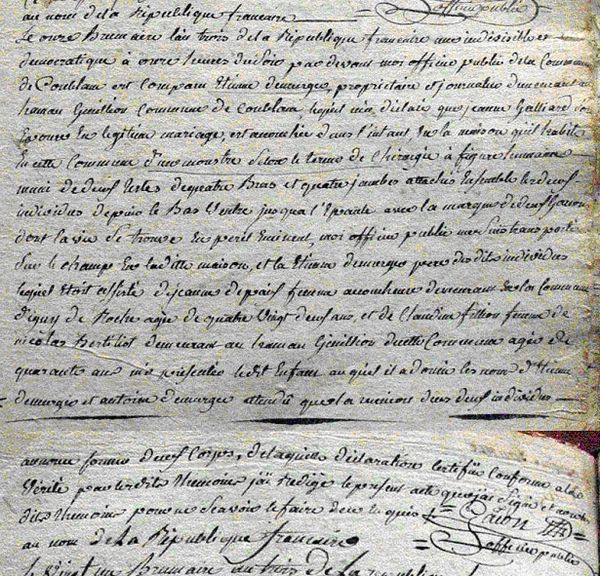 au nom de la République francaire
officier public
Le onze Brumaire l'an trois de la République francaire une indivisible et
democratique à onze heures du soir par devant moi officier public de la Commune
de Coublam est comparu Etienne demurger, propriétaire et journalier demeurant au
hamau Genillion Commune de Coublam lequel m'a déclaré que jeanne Galliard son
Epouse En legitime mariage, est acouchée dans l'instant En la maison qu'il habite
En cette Commune d'un monstre Selon le terme de Chirurgie à figure humaine
muni de deux testes de quatre Bras et quatre jambes attachés Ensemble les deux
individus depuis le Bas Ventre jusqua l'Epaule avec la marque de deux Garcons
dont la vie Se trouve En peril Eminent, moi officier public me suis transporté
Sur le champ En laditte maison, et la Etienne demurger pere des dits individus
lequel Etoit assisté de jeanne femme acoucheuse demeurant En la Commune
d'iguerande agée de quatre Vingt deux ans et de Claudine fillion femme de
nicolas Berthilot demeurant au hamau Genillion de cette Commune agée de
quarante ans m'a presentés ledit Enfans auquel il a donné les noms d'Etienne
demurger et antoine demurger attendû que la reunion des deux individus
annonce former deux Corps, de laquelle déclaration certifiée conforme a la
Verité par les dits thémoins j'ai redigé le present acte que j'ai Signé et non les
dits thémoins pour ne Savoir le faire de ce requis
officier public
au nom de la République francaire
Le Vingt un Brumaire an trois de la republique